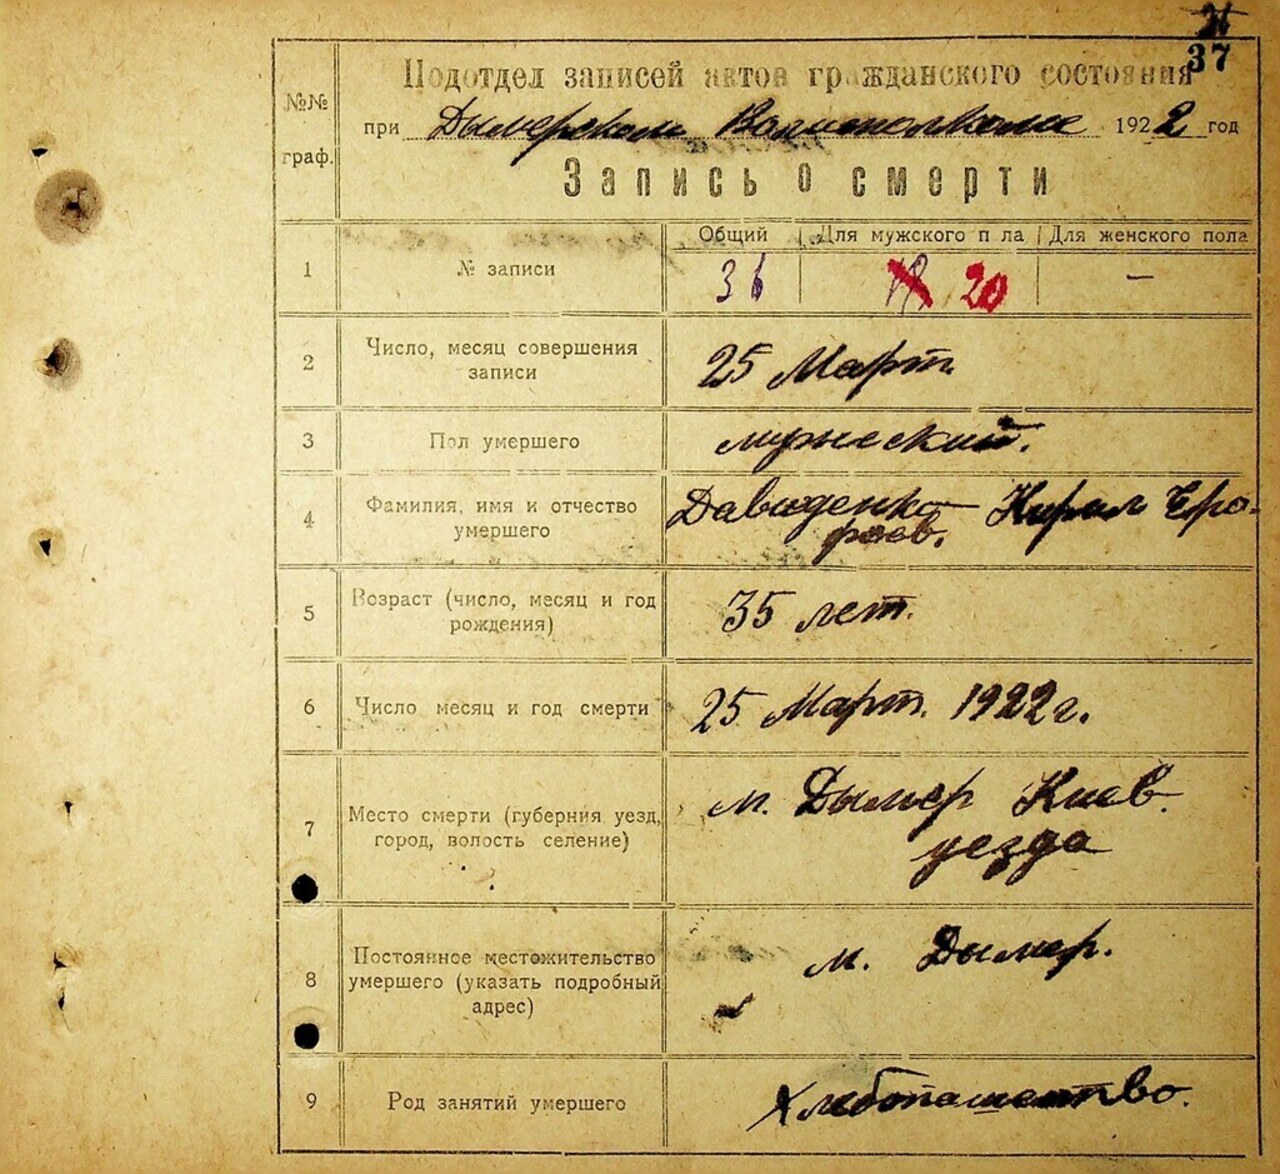 37
Подотдел записей актов гражданского состояния
№№
граф.
при Дымерском Волисполкоме 1922 год
Запись о смерти
Общий Для мужского п ла Для женского пола
1 № записи 36 20 —
2 Число, месяц совершения
записи
25 Март.
3 Пол умершего мужеский.
4 Фамилия, имя и отчество
умершего
Давиденко Кирил Еро-
феев.
5 Возраст (число, месяц и год
рождения)
35 лет.
6 Число месяц и год смерти 25 Март. 1922 г.
7 Место смерти (губерния уезд,
город, волость селение)
м. Дымер Киев.
уезда
8 Постоянное местожительство
умершего (указать подробный
адрес)
м. Дымер.
9 Род занятий умершего Хлебопашество.